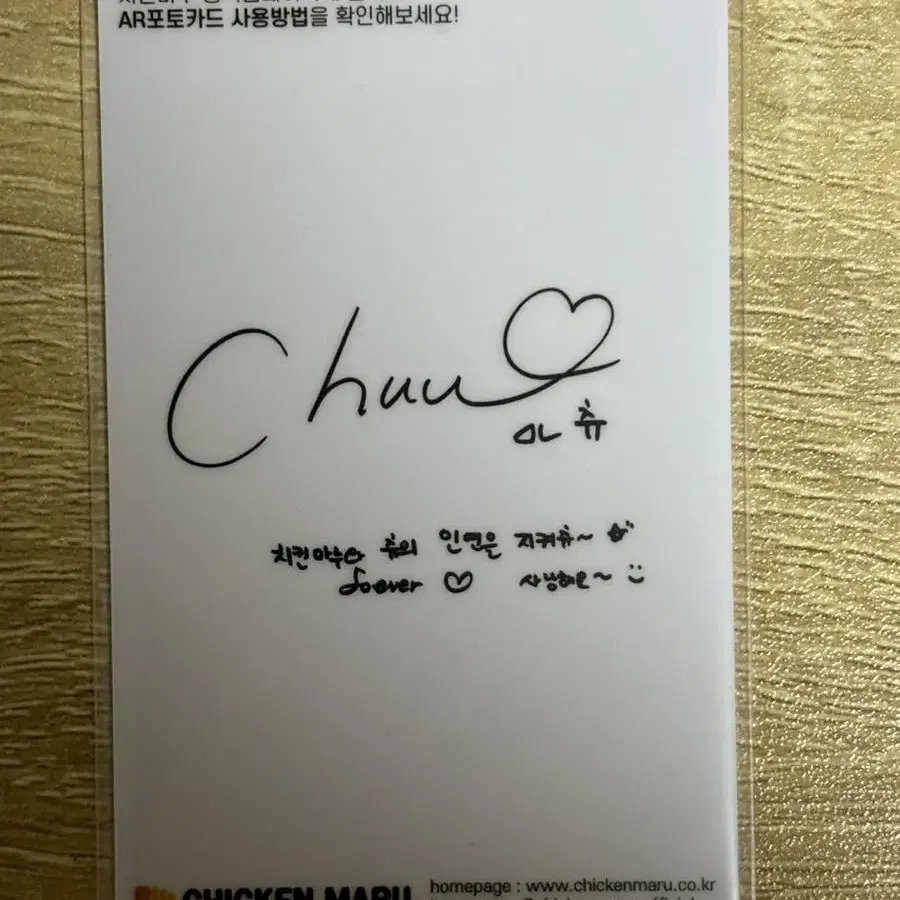 AR포토카드 사용방법을 확인해보세요!
Chuu
치킨마루와 츄의 인연은 지켜츄~
forever ♡ 사랑해요~
CHICKEN MARU
homepage : www.chickenmaru.co.kr